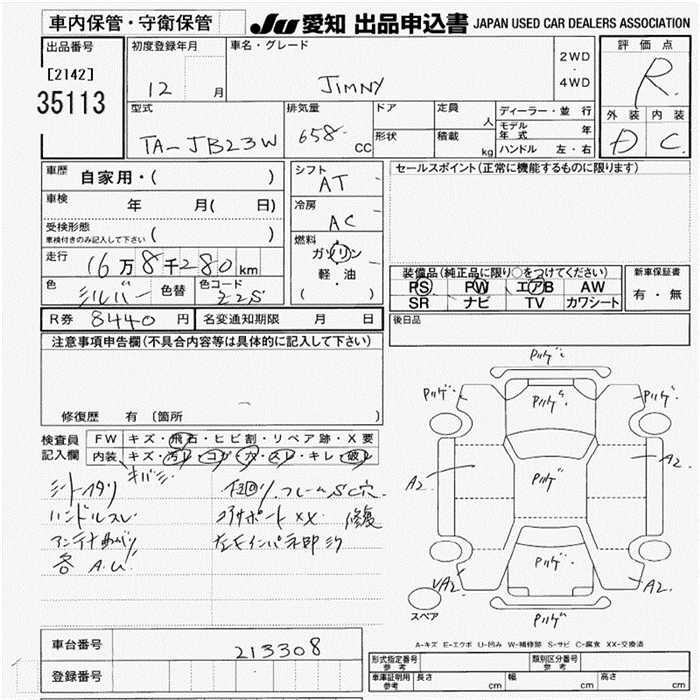 車内保管・守衛保管
JU 愛知 出品申込書 JAPAN USED CAR DEALERS ASSOCIATION
出品番号
[2142]
35113
初度登録年月
12 月
車名・グレード
JIMNY
2WD
・
4WD
評価点
R
外装 内装
D C
型式
TA-JB23W
排気量
658 cc
ドア
形状
定員 人
積載 kg
ディーラー・並行
モデル年式 年
ハンドル 左・右
車歴 自家用・( )
車検 年 月( 日)
受検形態
車検付きのみ記入して下さい ( )
走行 16万8千280km
色 シルバー 色替 色コード Z2S
シフト AT
冷房 AC
燃料
ガソリン
・
軽・油
( )
セールスポイント(正常に機能するものに限ります)
装備品(純正品に限り○をつけてください)
PS PW エアB AW
SR ナビ TV カワシート
新車保証書
有・無
R券 8440円 名変通知期限 月 日
後日品
注意事項申告欄(不具合内容等は具体的に記入して下さい)
修復歴 有 (箇所
検査員記入欄
FW キズ・飛石・ヒビ割・リペア跡・X要
内装 キズ・汚レ・コゲ・穴・スレ・キレ・破レ
シートヘタリ キバミ
ハンドルスレ
アンテナ曲り
各A.U
下回り、フレームSC穴
修復
Pハゲ
Pハゲ Pハゲ Pハゲ
A2 Pハゲ A2
VA2 Pハゲ A2
スペア Pハゲ
A-キズ E-エクボ U-凹み W-補修跡 S-サビ C-腐食 XX-交換済
車台番号 213308
登録番号
形式指定番号 参考
類別区分番号 参考
車庫証明用 参考 長さ cm 幅 cm 高さ cm